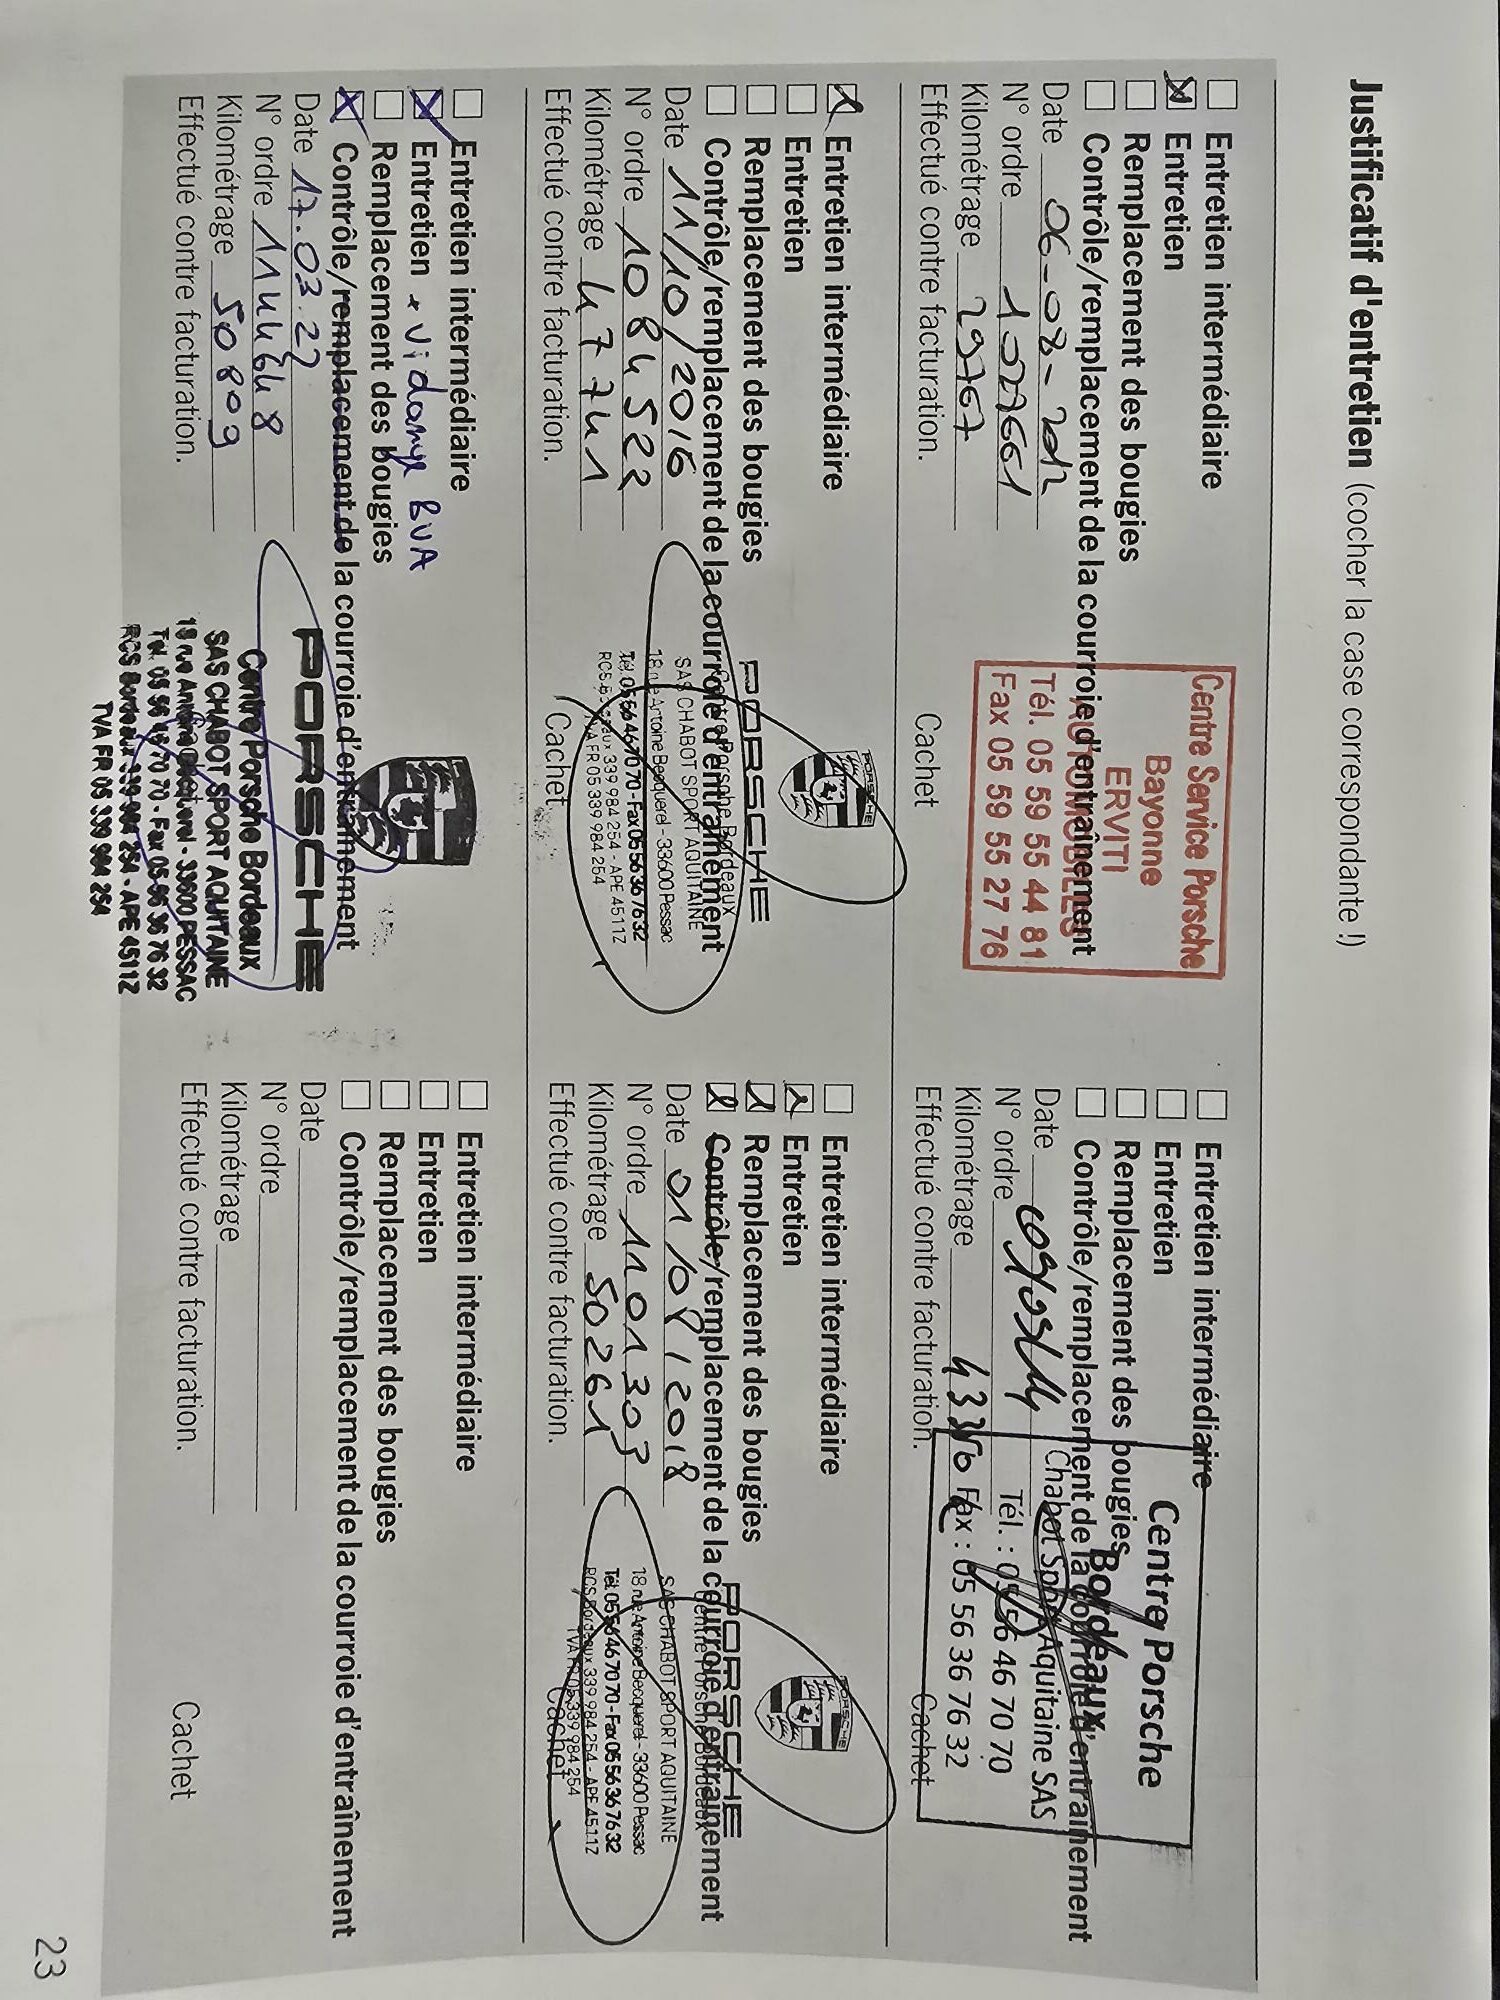 Justificatif d'entretien (cocher la case correspondante !)
Entretien intermédiaire
Entretien
Remplacement des bougies
Contrôle/remplacement de la courroie d'entraînement
Date 06-08-2012
N° ordre
Kilométrage 29767
Effectué contre facturation.
Cachet
Centre Service Porsche
Bayonne
ERVITI
AUTOMOBILES
Tél. 05 59 55 44 81
Fax 05 59 55 27 76
Entretien intermédiaire
Entretien
Remplacement des bougies
Contrôle/remplacement de la courroie d'entraînement
Date
N° ordre
Kilométrage 43350
Effectué contre facturation.
Cachet
Centre Porsche
Bordeaux
Chabot Sport Aquitaine SAS
Tél. : 05 56 46 70 70
Fax : 05 56 36 76 32
Entretien intermédiaire
Entretien
Remplacement des bougies
Contrôle/remplacement de la courroie d'entraînement
Date 11/10/2016
N° ordre 1084522
Kilométrage 47741
Effectué contre facturation.
Cachet
PORSCHE
PORSCHE
Centre Porsche Bordeaux
SAS CHABOT SPORT AQUITAINE
18 rue Antoine Becquerel - 33600 Pessac
Tél. 05 56 46 70 70 - Fax 05 56 36 76 32
RCS Bordeaux 339 984 254 - APE 4511Z
TVA FR 05 339 984 254
Entretien intermédiaire
Entretien
Remplacement des bougies
Contrôle/remplacement de la courroie d'entraînement
Date 01/08/2018
N° ordre 1101303
Kilométrage 50261
Effectué contre facturation.
Cachet
PORSCHE
PORSCHE
Centre Porsche Bordeaux
SAS CHABOT SPORT AQUITAINE
18 rue Antoine Becquerel - 33600 Pessac
Tél. 05 56 46 70 70 - Fax 05 56 36 76 32
RCS Bordeaux 339 984 254 - APE 4511Z
TVA FR 05 339 984 254
Entretien intermédiaire
Entretien + Vidange BVA
Remplacement des bougies
Contrôle/remplacement de la courroie d'entraînement
Date 17.03.22
N° ordre 1144648
Kilométrage 50809
Effectué contre facturation.
PORSCHE
Centre Porsche Bordeaux
SAS CHABOT SPORT AQUITAINE
18 rue Antoine Becquerel - 33600 PESSAC
Tél. 05 56 46 70 70 - Fax 05 56 36 76 32
RCS Bordeaux 339 984 254 - APE 4511Z
TVA FR 05 339 984 254
Entretien intermédiaire
Entretien
Remplacement des bougies
Contrôle/remplacement de la courroie d'entraînement
Date
N° ordre
Kilométrage
Effectué contre facturation.
Cachet
23